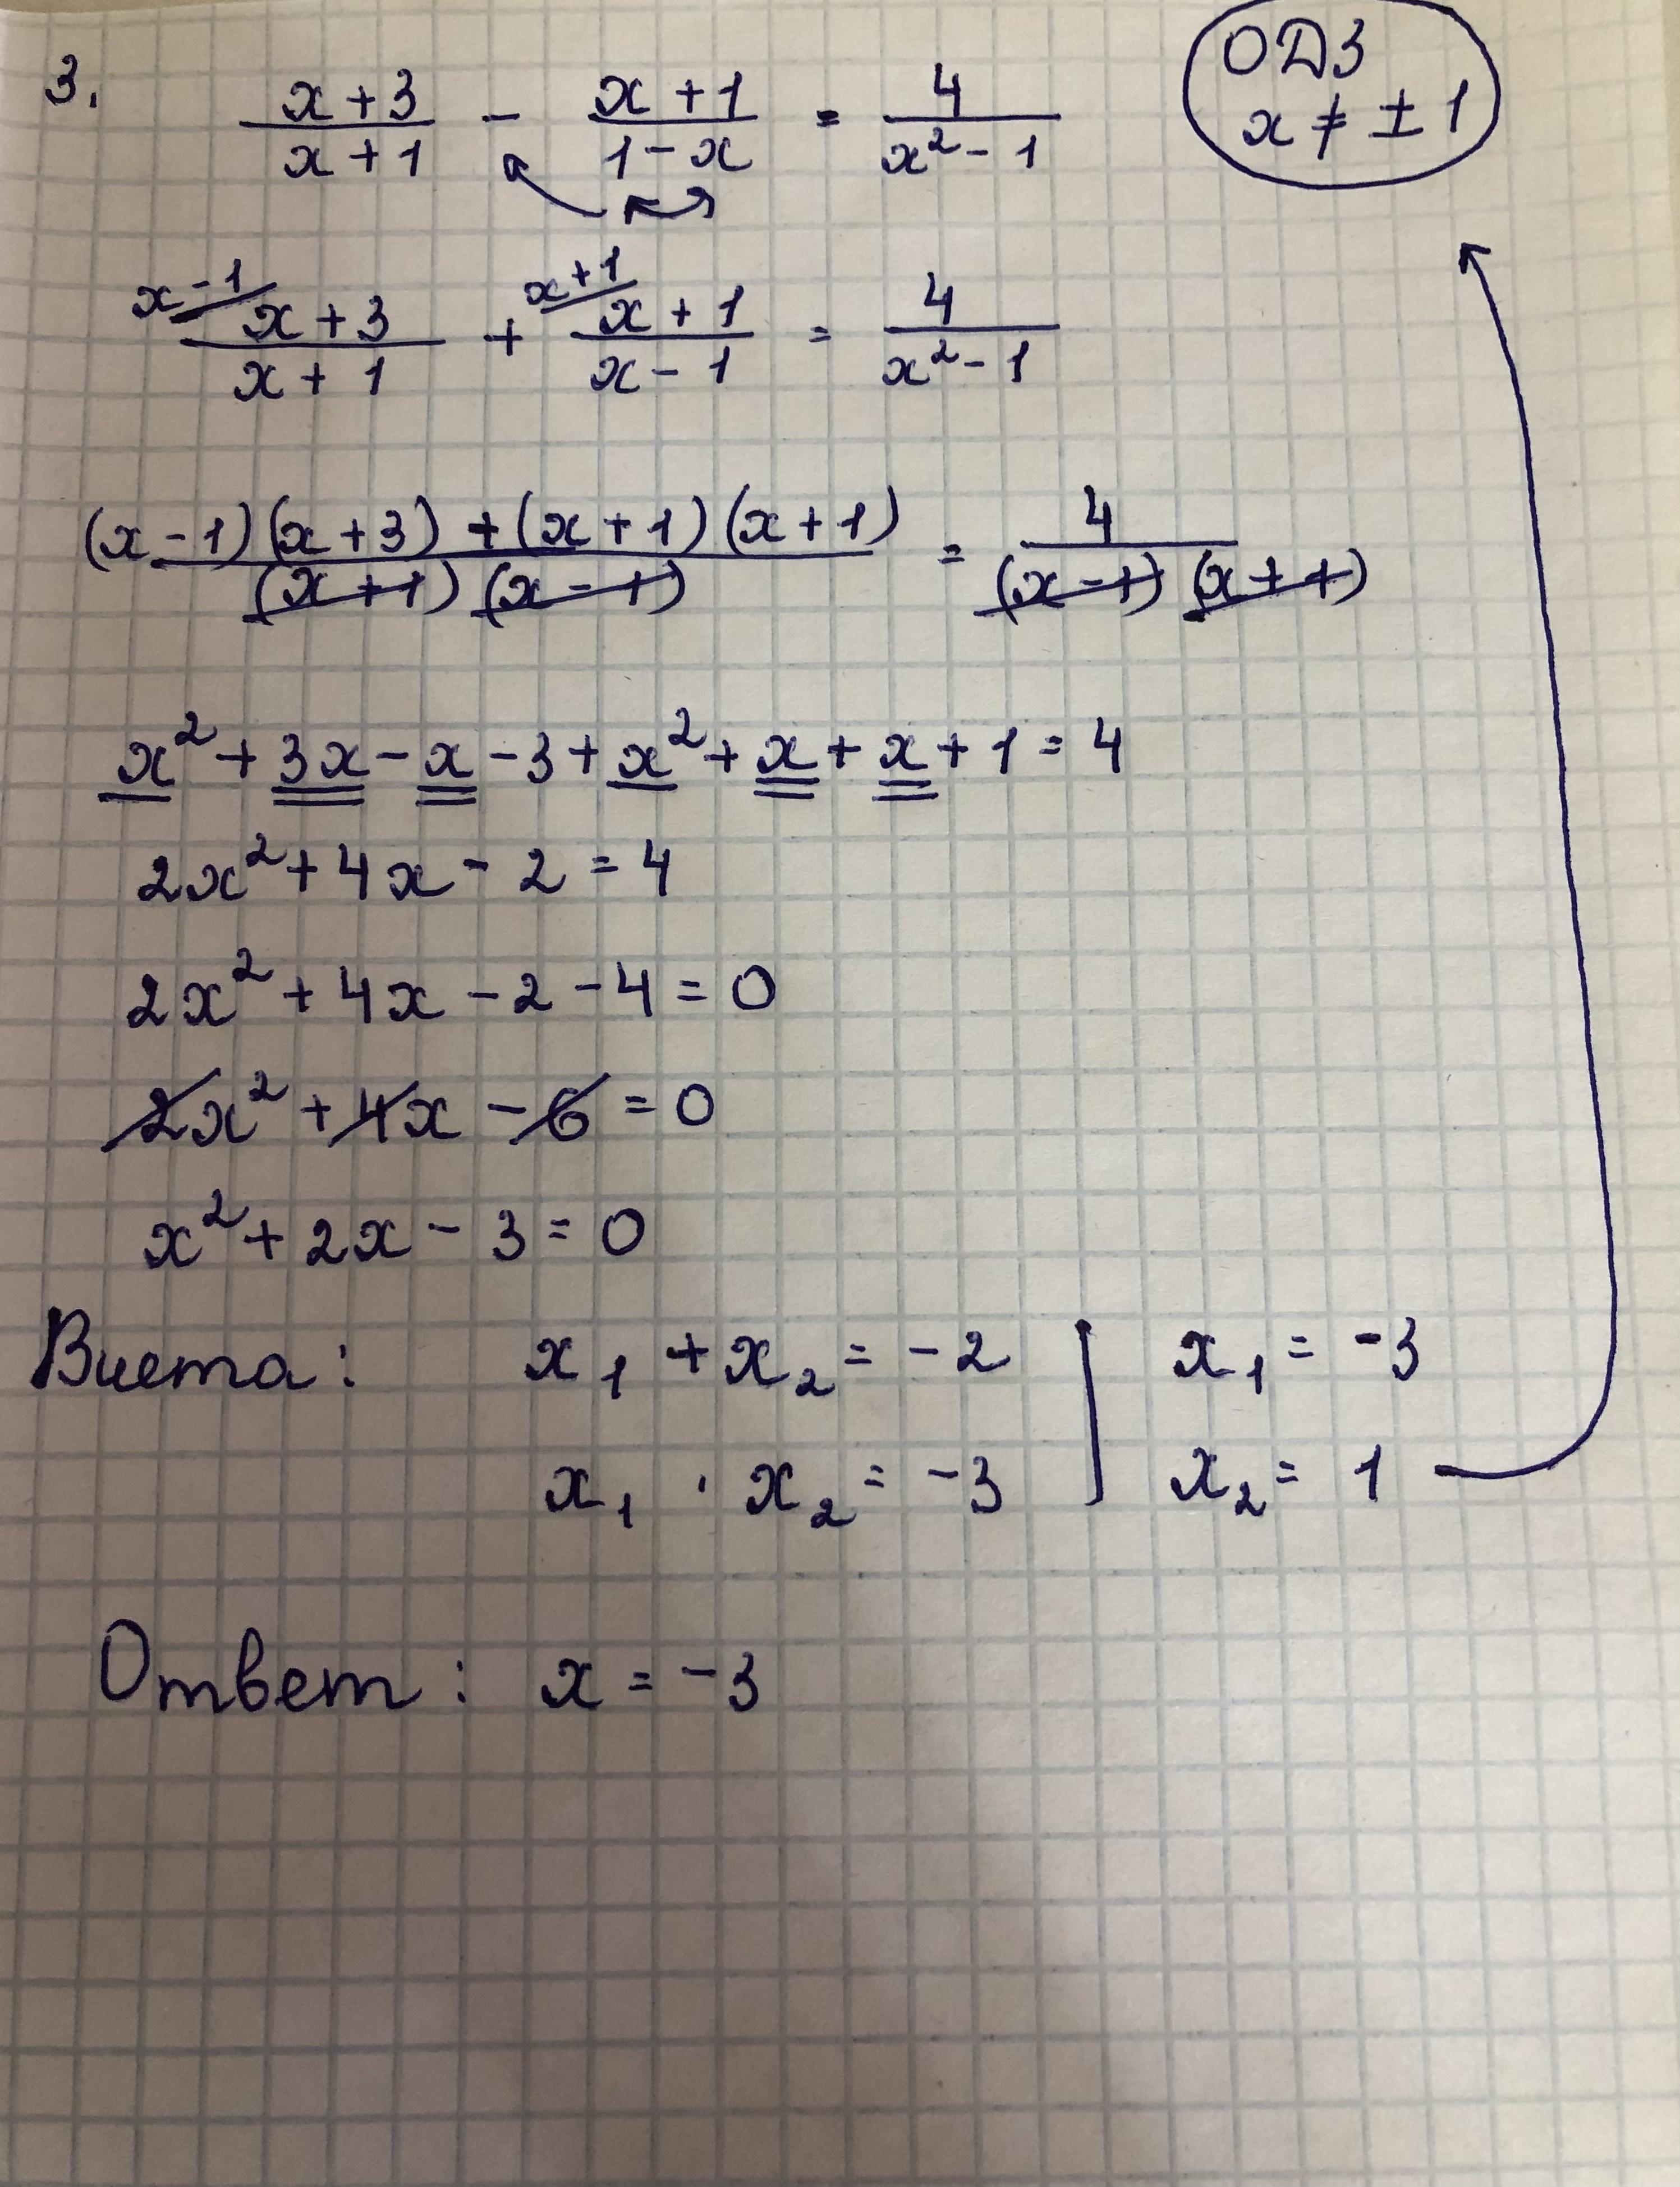 3. (x + 3)/(x + 1) - (x + 1)/(1 - x) = 4/(x² - 1)
ОДЗ
x ≠ ± 1
x - 1 (x + 3)/(x + 1) + x + 1 (x + 1)/(x - 1) = 4/(x² - 1)
((x - 1)(x + 3) + (x + 1)(x + 1))/((x + 1)(x - 1)) = 4/((x - 1)(x + 1))
x² + 3x - x - 3 + x² + x + x + 1 = 4
2x² + 4x - 2 = 4
2x² + 4x - 2 - 4 = 0
2x² + 4x - 6 = 0
x² + 2x - 3 = 0
Виета: x₁ + x₂ = -2 x₁ = -3
x₁ · x₂ = -3 x₂ = 1
Ответ: x = -3